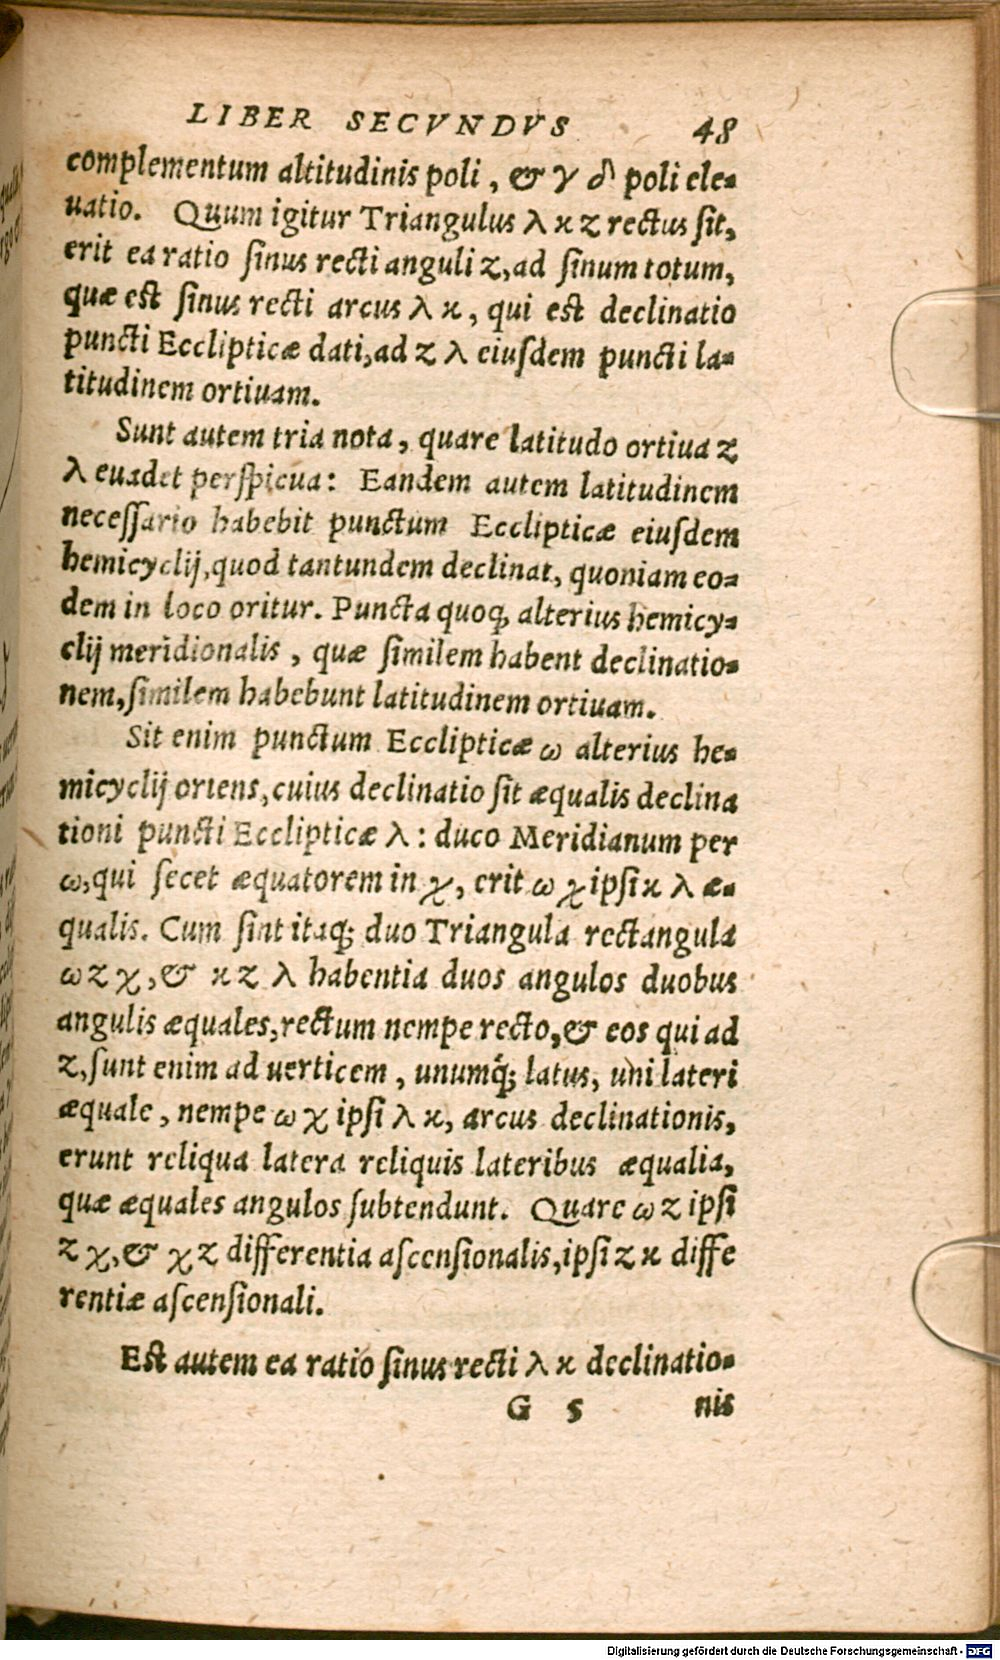 LIBER SECVNDVS 48
complementum altitudinis poli, & γ δ poli ele-
uatio. Quum igitur Triangulus λ ϰ z rectus ſit,
erit ea ratio ſinus recti anguli z, ad ſinum totum,
quæ est ſinus recti arcus λ ϰ, qui est declinatio
puncti Ecclipticæ dati, ad z λ eiuſdem puncti la-
titudinem ortiuam.
Sunt autem tria nota, quare latitudo ortiua z
λ euadet perſpicua: Eandem autem latitudinem
neceſſario habebit punctum Ecclipticæ eiuſdem
hemicyclij, quod tantundem declinat, quoniam eo-
dem in loco oritur. Puncta quoq; alterius hemicy-
clij meridionalis, quæ ſimilem habent declinatio-
nem, ſimilem habebunt latitudinem ortiuam.
Sit enim punctum Ecclipticæ ω alterius he-
micyclij oriens, cuius declinatio ſit æqualis declina
tioni puncti Ecclipticæ λ: duco Meridianum per
ω, qui ſecet æquatorem in χ, erit ω χ ipſi ϰ λ æ-
qualis. Cum ſint itaq; duo Triangula rectangula
ω z χ, & ϰ z λ habentia duos angulos duobus
angulis æquales, rectum nempe recto, & eos qui ad
z, ſunt enim ad uerticem, unumq́; latus, uni lateri
æquale, nempe ω χ ipſi λ ϰ, arcus declinationis,
erunt reliqua latera reliquis lateribus æqualia,
quæ æquales angulos ſubtendunt. Quare ω z ipſi
z χ, & χ z differentia aſcenſionalis, ipſi z ϰ diffe
rentiæ aſcenſionali.
Est autem ea ratio ſinus recti λ ϰ declinatio-
G 5 nis
Digitalisierung gefördert durch die Deutsche Forschungsgemeinschaft - DFG